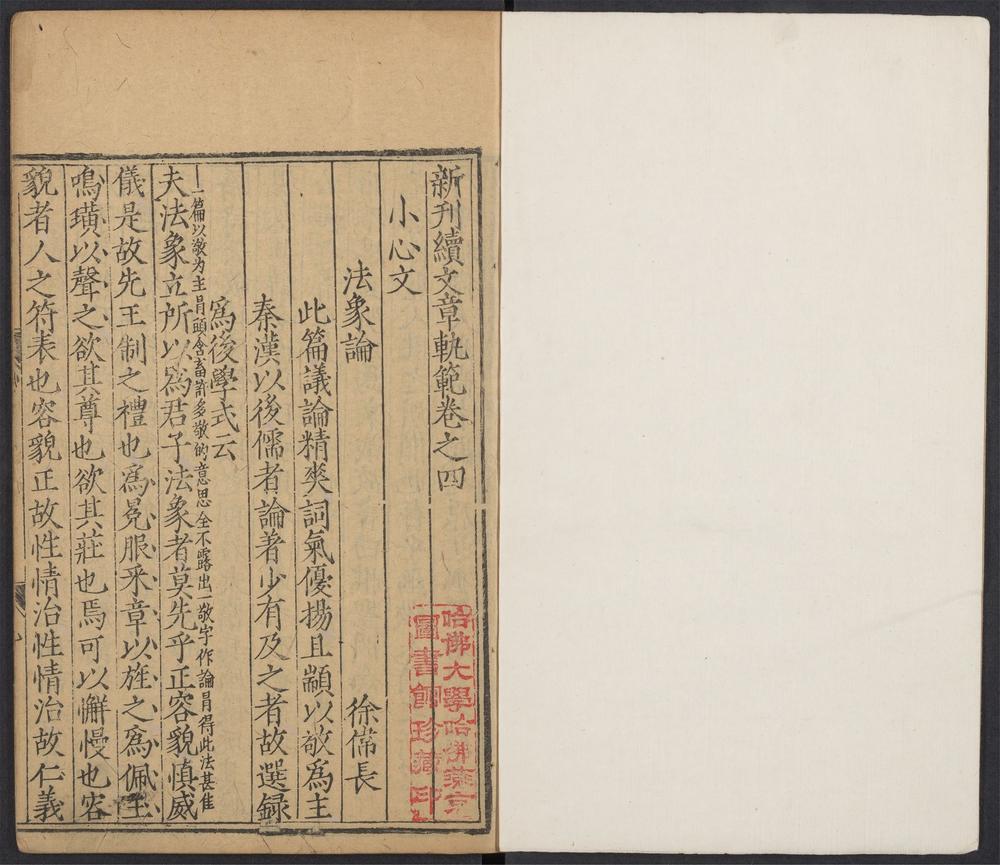 新刋續文章軌範卷之四
小心文
法象論　徐偹長
此篇議論精爽詞氣優揚且顓以敬爲主
秦漢以後儒者論著少有及之者故選録
爲後學式云
一篇以敬为主冐頭含畜許多敬的意思全不露出一敬字作論冐得此法甚佳
夫法象立所以爲君子法象者莫先乎正容貌慎威
儀是故先王制之禮也爲冕服采章以旌之爲佩玉
鳴璜以聲之欲其尊也欲其莊也焉可以懈慢也容
貌者人之符表也容貌正故性情治性情治故仁義
哈佛大學哈佛燕京
圖書館珍藏印